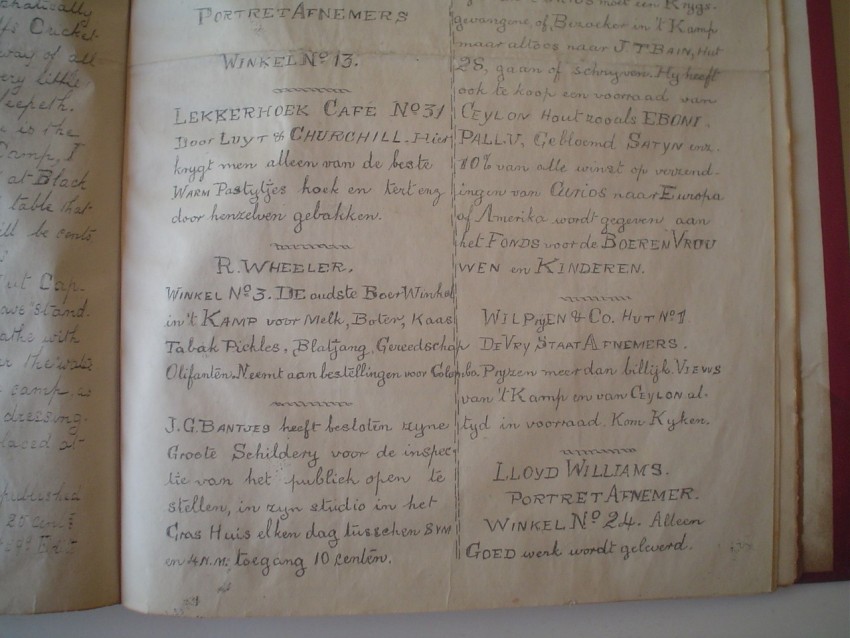 chatically
Cricket
way of all
very little
sleepeth.
is the
Camp, I
at Black
table that
will be cents
ut Cap.
ave stand.
athe with
the wate
camp, as
dressing.
laced at
published
25 cents
PORTRET AFNEMERS
WINKEL No 13.
LEKKERHOEK CAFÉ No 31
Door LUYT & CHURCHILL. Hier
krygt men alleen van de beste
WARM Pastytjes hoek en tert enz
door henzelven gebakken.
R. WHEELER.
WINKEL No 3. DE oudste Boer Winkel
in 't KAMP voor Melk, Boter, Kaas
Tabak Pickles, Blatjang, Gereedschap
Olifanten. Neemt aan bestellingen voor Colombo.
J. G. BANTJES heeft besloten zyne
Groote Schildery voor de inspec-
tie van het publick open te
stellen, in zyn studio in het
Gras Huis elken dag tusschen 8 VM
en 4 N.M: toegang 10 centen.
moet een Krygs-
gevangene of Bezoeker in 't Kamp
maar altoos naar J. T. BAIN, Hut
28, gaan of schryven. Hy heeft
ook te koop een voorraad van
CEYLON Hout zooals EBONI.
PALLU, Gebloemd SATYN enz.
10% van alle winst op verzend-
ingen van Curios naar Europa
of Amerika wordt gegeven aan
het FONDS voor de BOEREN VROU
WEN en KINDEREN.
WILPRYEN & Co. HUT No 1
DE VRY STAAT AFNEMERS.
Pryzen meer dan billijk. VIEWS
van 't Kamp en van CEYLON al-
tyd in voorraad. Kom Kyken.
LLOYD WILLIAMS.
PORTRET AFNEMER.
WINKEL No 24. Alleen
GOED werk wordt geleverd.